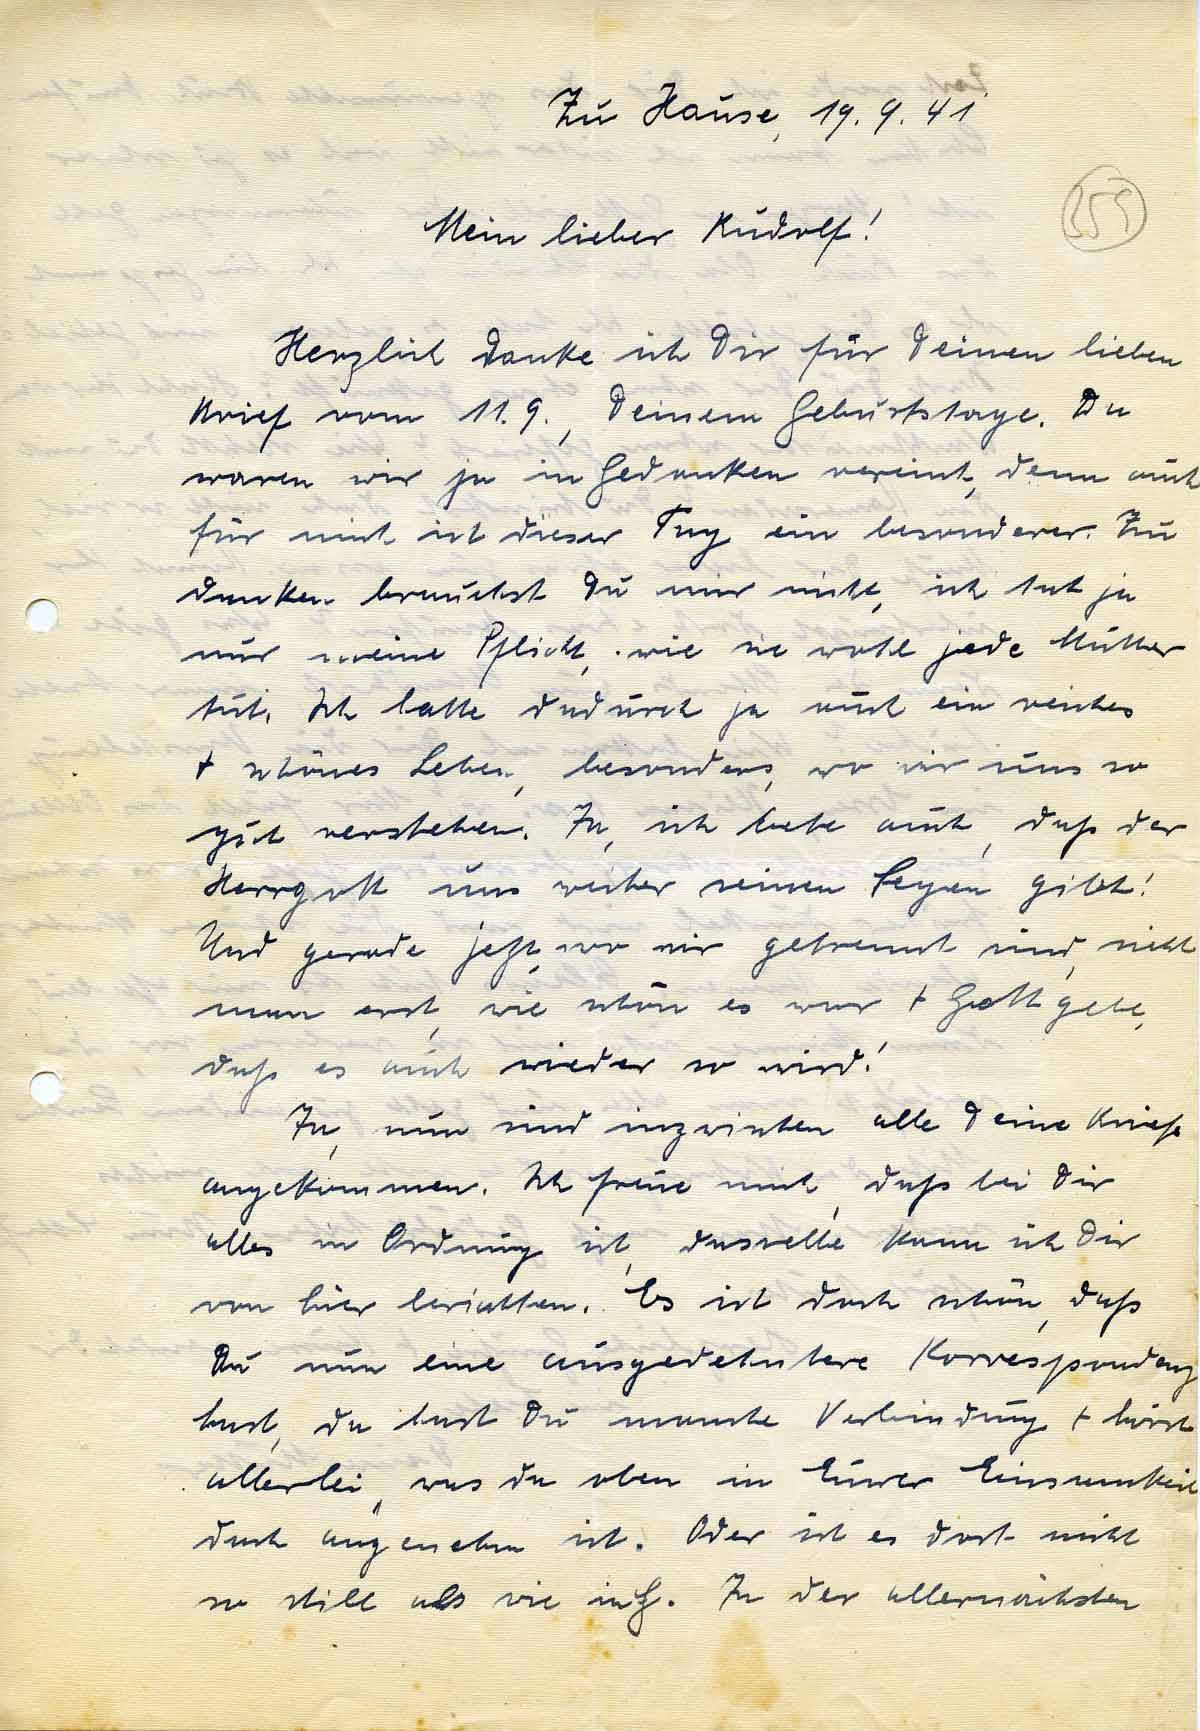 Zu Hause, 19.9.41
259
Mein lieber Rudolf!
Herzlich danke ich Dir für Deinen lieben
Brief vom 11.9., Deinem Geburtstage. Da
waren wir ja in Gedanken vereint, denn auch
für mich ist dieser Tag ein besonderer. Zu
danken brauchst Du mir nicht, ich tat ja
nur meine Pflicht, wie sie wohl jede Mutter
tut. Ich hatte dadurch ja auch ein reiches
+ schönes Leben, besonders, wo wir uns so
gut verstehen. Ja, ich bete auch, daß der
Herrgott uns weiter seinen Segen gibt!
Und gerade jetzt, wo wir getrennt sind, sieht
man erst, wie schön es war + Gott gebe,
daß es auch wieder so wird!
Ja, nun sind inzwischen alle Deine Briefe
angekommen. Ich freue mich, daß bei Dir
alles in Ordnung ist, dasselbe kann ich Dir
von hier berichten. Es ist doch schön, daß
Du nun eine ausgedehntere Korrespondenz
hast, da hast Du manche Verbindung + hörst
allerlei, was da oben in Eurer Einsamkeit
doch angenehm ist. Oder ist es dort nicht
so still als wie in G. In der allernächsten